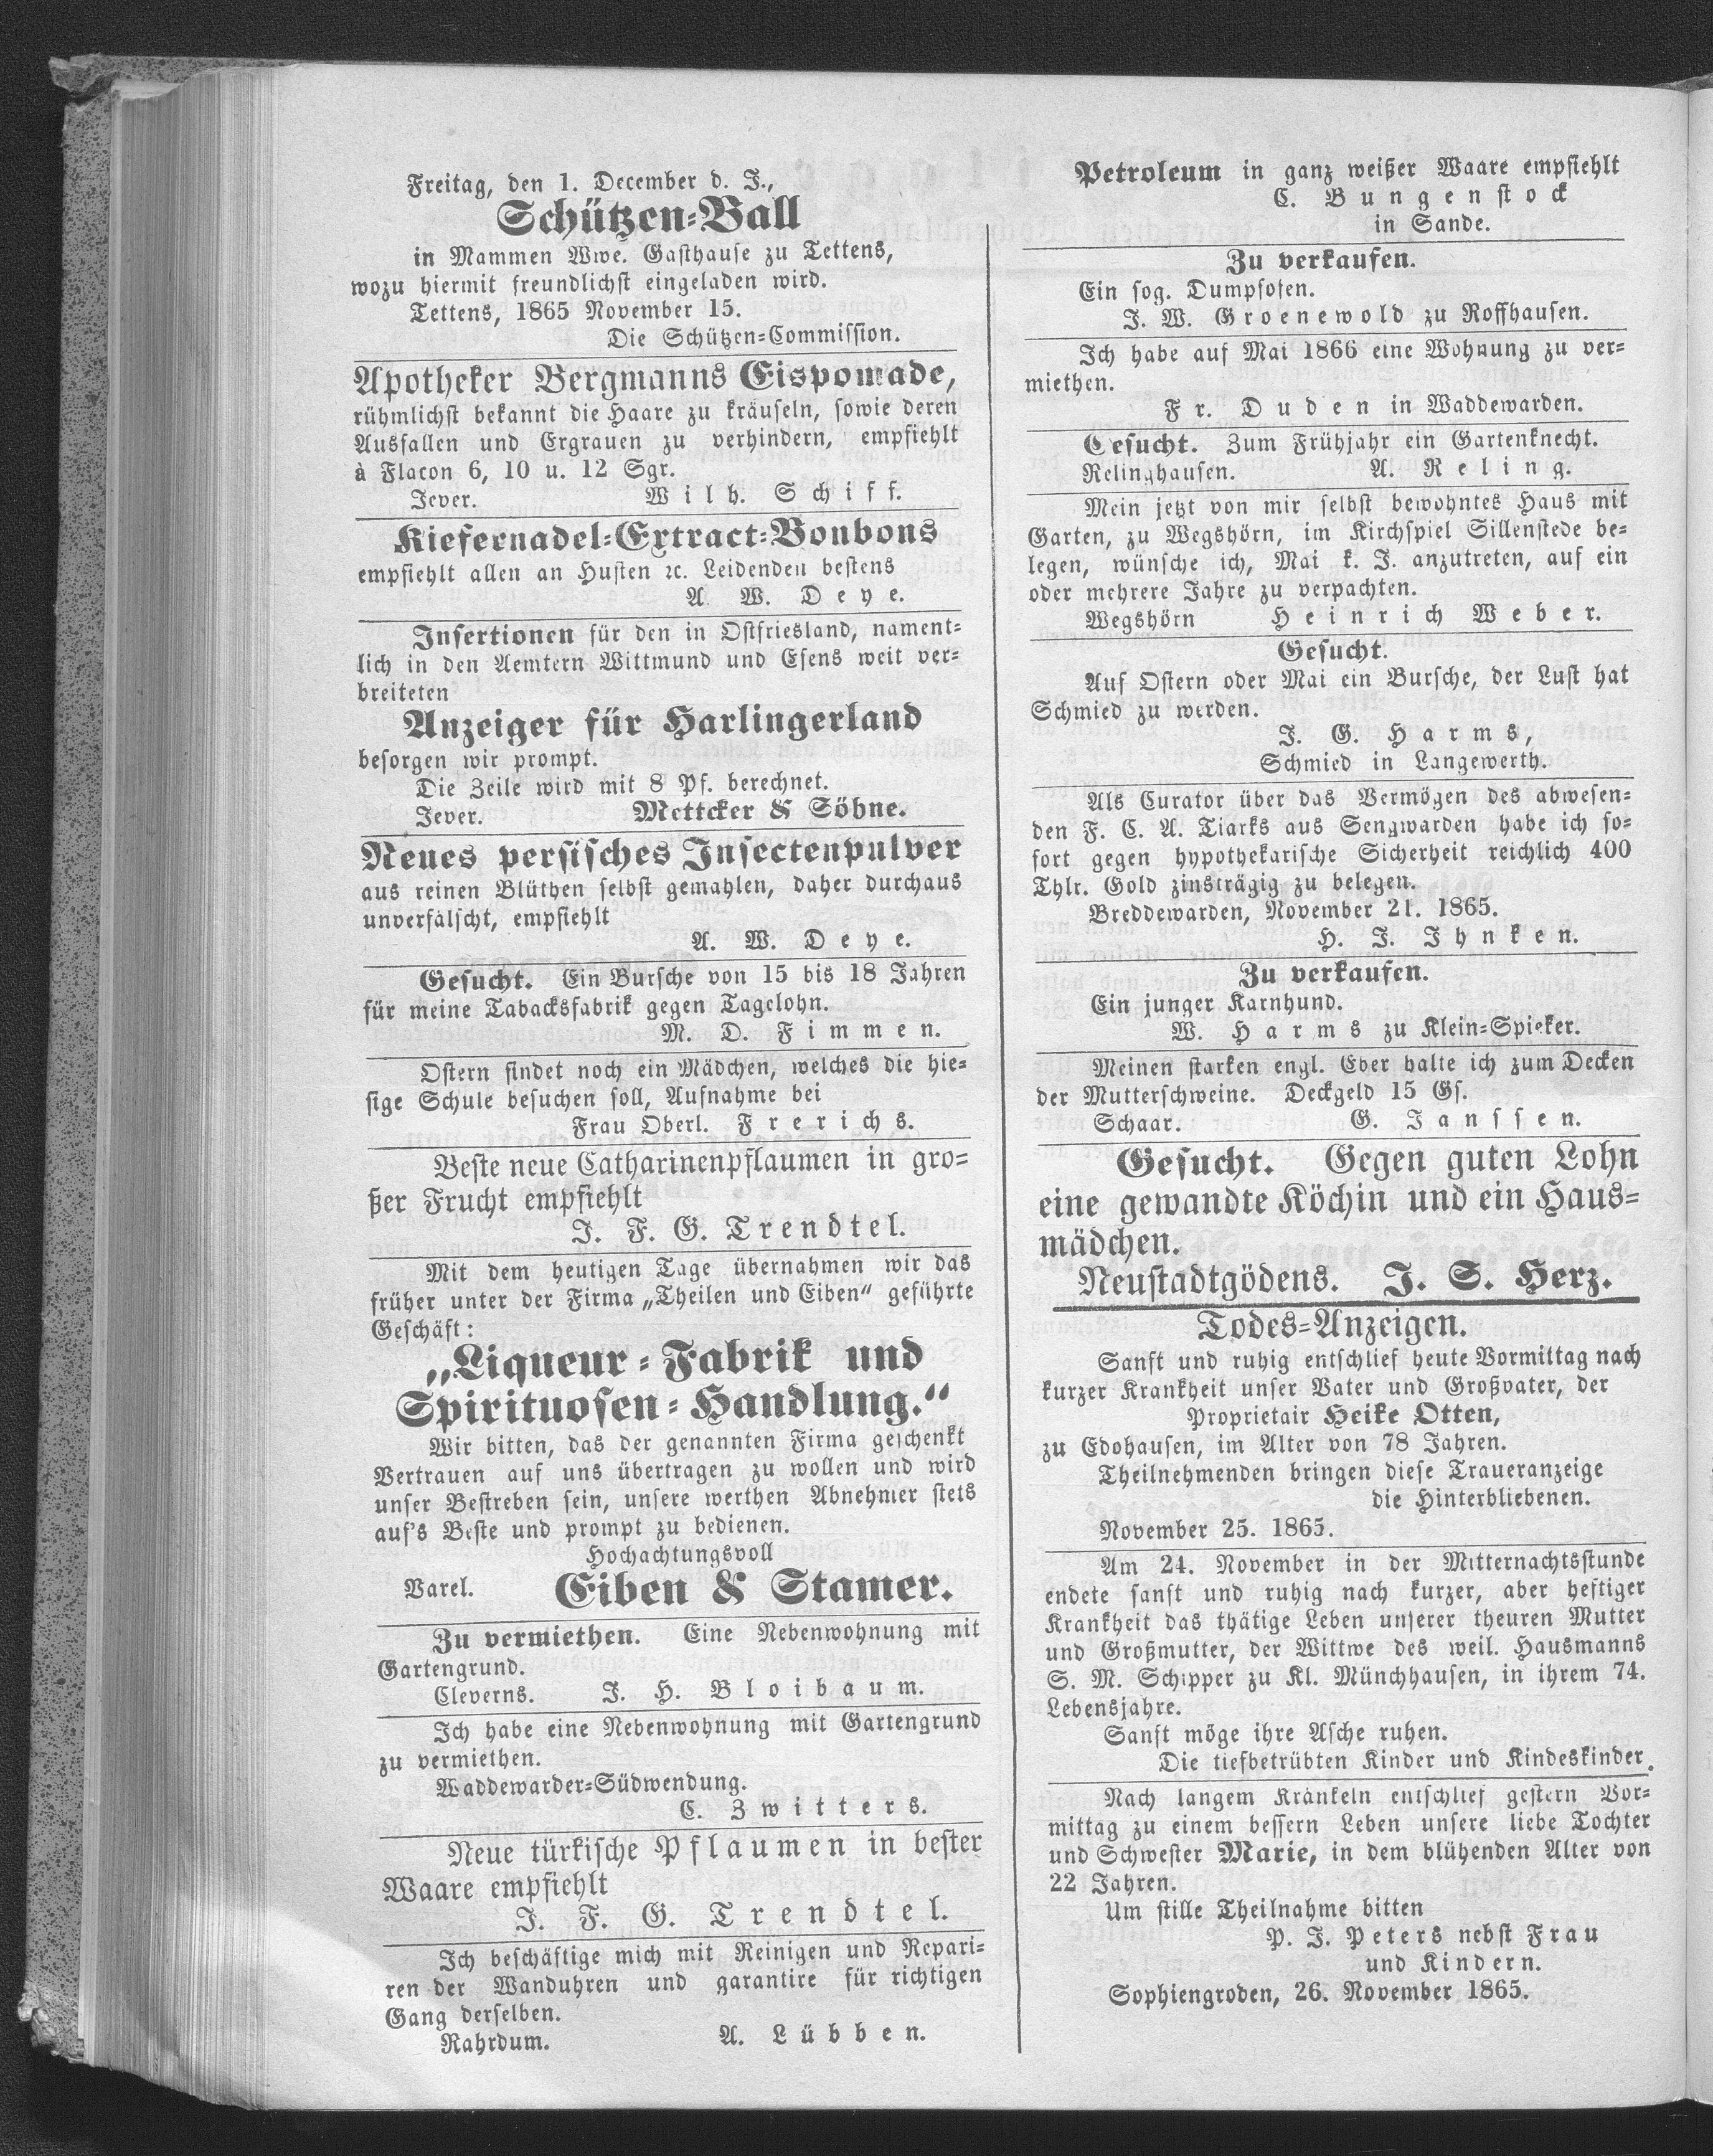 Freitag, den 1. December d. J.,
Schützen-Ball
in Mammen Wwe. Gasthause zu Tettens,
wozu hiermit freundlichst eingeladen wird.
Tettens, 1865 November 15.
Die Schützen-Commission.
Apotheker Bergmanns Eispomade,
rühmlichst bekannt die Haare zu kräuseln, sowie deren
Ausfallen und Ergrauen zu verhindern, empfiehlt
à Flacon 6, 10 u. 12 Sgr.
Jever. Wilh. Schiff.
Kiefernadel-Extract-Bonbons
empfiehlt allen an Husten ꝛc. Leidenden bestens
A. W. Deye.
Insertionen für den in Ostfriesland, nament-
lich in den Aemtern Wittmund und Esens weit ver-
breiteten
Anzeiger für Harlingerland
besorgen wir prompt.
Die Zeile wird mit 8 Pf. berechnet.
Jever. Mettcker & Söhne.
Neues persisches Insectenpulver
aus reinen Blüthen selbst gemahlen, daher durchaus
unverfälscht, empfiehlt
A. W. Deye.
Gesucht. Ein Bursche von 15 bis 18 Jahren
für meine Tabacksfabrik gegen Tagelohn.
M. D. Fimmen.
Ostern findet noch ein Mädchen, welches die hie-
sige Schule besuchen soll, Aufnahme bei
Frau Oberl. Frerichs.
Beste neue Catharinenpflaumen in gro-
ßer Frucht empfiehlt
J. F. G. Trendtel.
Mit dem heutigen Tage übernahmen wir das
früher unter der Firma „Theilen und Eiben" geführte
Geschäft:
„Liqueur-Fabrik und
Spirituosen-Handlung."
Wir bitten, das der genannten Firma geschenkt
Vertrauen auf uns übertragen zu wollen und wird
unser Bestreben sein, unsere werthen Abnehmer stets
auf's Beste und prompt zu bedienen.
Hochachtungsvoll
Varel. Eiben & Stamer.
Zu vermiethen. Eine Nebenwohnung mit
Gartengrund.
Cleverns. J. H. Bloibaum.
Ich habe eine Nebenwohnung mit Gartengrund
zu vermiethen.
Waddewarder-Südwendung.
C. Zwitters.
Neue türkische Pflaumen in bester
Waare empfiehlt
J. F. G. Trendtel.
Ich beschäftige mich mit Reinigen und Repari-
ren der Wanduhren und garantire für richtigen
Gang derselben.
Rahrdum. A. Lübben.
Petroleum in ganz weißer Waare empfiehlt
C. Bungenstock
in Sande.
Zu verkaufen.
Ein sog. Dumpfofen.
J. W. Groenewold zu Roffhausen.
Ich habe auf Mai 1866 eine Wohnung zu ver-
miethen.
Fr. Duden in Waddewarden.
Gesucht. Zum Frühjahr ein Gartenknecht.
Relinghausen. A. Reling.
Mein jetzt von mir selbst bewohntes Haus mit
Garten, zu Wegshörn, im Kirchspiel Sillenstede be-
legen, wünsche ich, Mai k. J. anzutreten, auf ein
oder mehrere Jahre zu verpachten.
Wegshörn Heinrich Weber.
Gesucht.
Auf Ostern oder Mai ein Bursche, der Lust hat
Schmied zu werden.
J. G. Harms,
Schmied in Langewerth.
Als Curator über das Vermögen des abwesen-
den F. C. A. Tiarks aus Sengwarden habe ich so-
fort gegen hypothekarische Sicherheit reichlich 400
Thlr. Gold zinsträgig zu belegen.
Breddewarden, November 21. 1865.
H. J. Ihnken.
Zu verkaufen.
Ein junger Karnhund.
W. Harms zu Klein-Spieker.
Meinen starken engl. Eber halte ich zum Decken
der Mutterschweine. Deckgeld 15 Gs.
Schaar. G. Janssen.
Gesucht. Gegen guten Lohn
eine gewandte Köchin und ein Haus-
mädchen.
Neustadtgödens. J. S. Herz.
Todes-Anzeigen.
Sanft und ruhig entschlief heute Vormittag nach
kurzer Krankheit unser Vater und Großvater, der
Proprietair Heike Otten,
zu Edohausen, im Alter von 78 Jahren.
Theilnehmenden bringen diese Traueranzeige
die Hinterbliebenen.
November 25. 1865.
Am 24. November in der Mitternachtsstunde
endete sanft und ruhig nach kurzer, aber heftiger
Krankheit das thätige Leben unserer theuren Mutter
und Großmutter, der Wittwe des weil. Hausmanns
S. M. Schipper zu Kl. Münchhausen, in ihrem 74.
Lebensjahre.
Sanft möge ihre Asche ruhen.
Die tiefbetrübten Kinder und Kindeskinder.
Nach langem Kränkeln entschlief gestern Vor-
mittag zu einem bessern Leben unsere liebe Tochter
und Schwester Marie, in dem blühenden Alter von
22 Jahren.
Um stille Theilnahme bitten
P. J. Peters nebst Frau
und Kindern.
Sophiengroden, 26. November 1865.